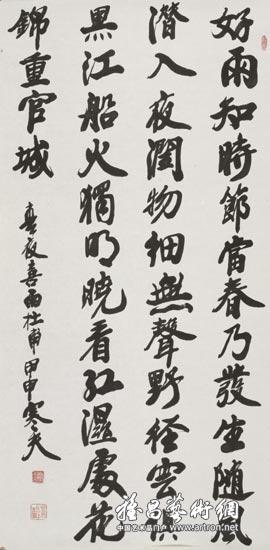 好雨知時節當春乃發生随風
潛入夜潤物細無聲野径雲俱
黑江船火獨明曉看红濕處花
錦重官城
春夜喜雨杜甫甲申寒夫
雅昌藝術網
中国艺术品门户 www.artron.net